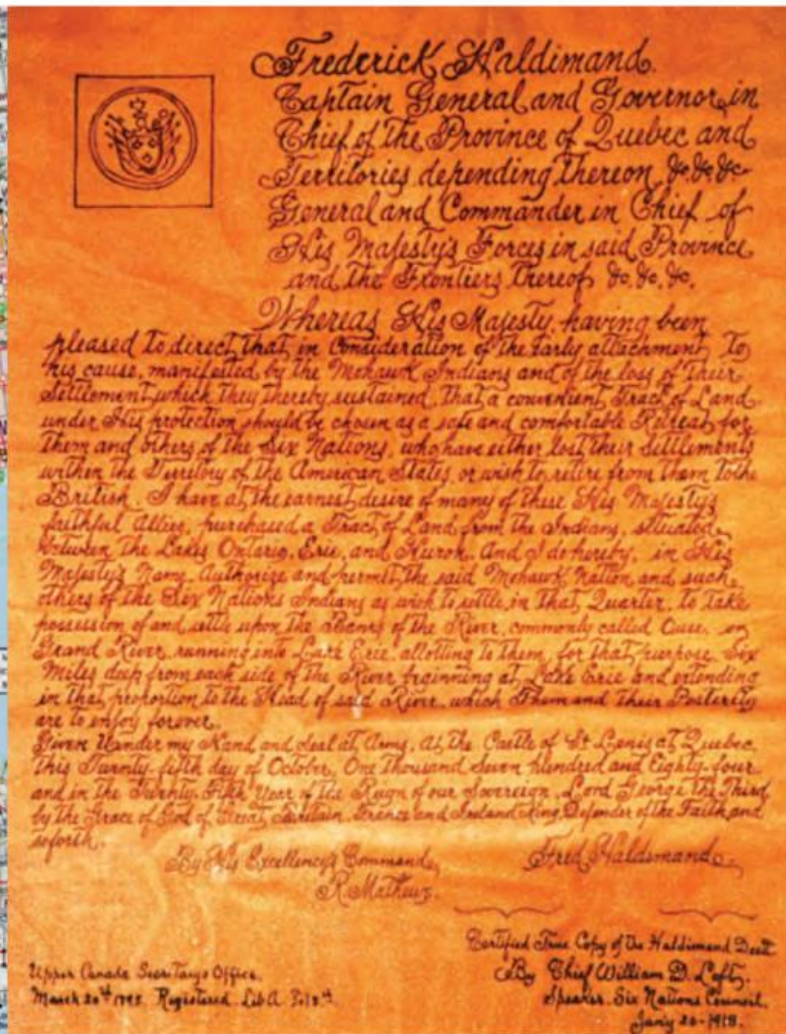 Frederick Haldimand.
Captain General and Governor in
Chief of the Province of Quebec and
Territories depending thereon, &c. &c. &c
General and Commander in Chief of
His Majesty's Forces in said Province
and the Frontiers thereof, &c. &c. &c.
Whereas His Majesty, having been
pleased to direct that in Consideration of the Early attachment to
his cause, manifested by the Mohawk Indians and of the loss of their
Settlement which they thereby sustained, that a convenient Tract of Land
under His protection should be chosen as a safe and comfortable Retreat for
them and others of the Six Nations, who have either lost their Settlements
within the Territory of the American States, or wish to retire from them to the
British, I have at the earnest desire of many of these His Majesty's
faithful Allies, purchased a Tract of Land from the Indians, situated
between the Lakes Ontario, Erie, and Huron. And I do hereby, in His
Majesty's Name, Authorize and permit, the said Mohawk Nation, and such
others of the Six Nations Indians as wish to settle in that Quarter, to take
possession of and settle upon the Banks of the River, commonly called Ouse, or
Grand River, running into Lake Erie, allotting to them, for that purpose, Six
Miles deep from each side of the River beginning at Lake Erie and extending
in that proportion to the Head of said River, which Them and Their Posterity
are to enjoy forever.
Given Under my Hand and Seal at Arms, At the Castle of St Lewis at Quebec,
this Twenty-fifth day of October, One thousand Seven hundred and Eighty-four
and in the Twenty-Fifth Year of the Reign of our Sovereign, Lord George the Third
by the Grace of God of Great Britain, France and Ireland King Defender of the Faith and
soforth.
By His Excellency's Command, Fred Haldimand.
R. Mathews.
Certified True Copy of the Haldimand Deed
By Chief William D. Loft,
Speaker, Six Nations Council,
Jan'y 26-1918.
Upper Canada Secretarys Office,
March 20th 1795. Registered Lib A.